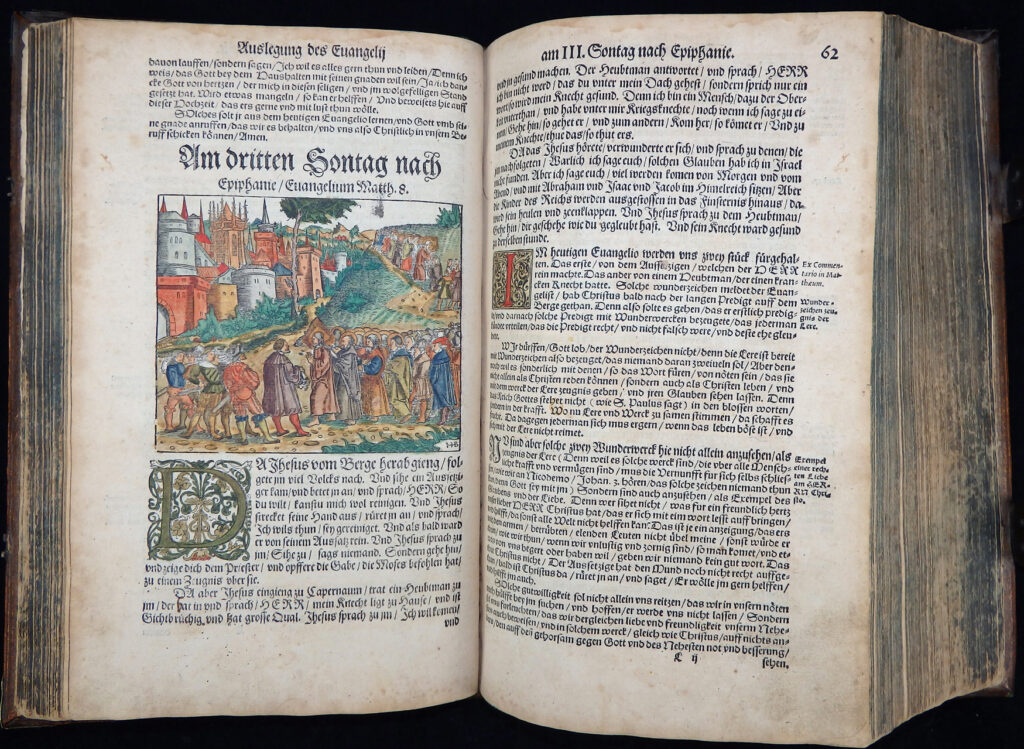 Auslegung des Euangelij
dauon lauffen/sondern sagen/Ich wil es alles gern thun vnd leiden/Denn ich
weis/das Gott bey dem Haushalten mit seinen gnaden wil sein/Ja/ich dan-
cke Gott von hertzen/der mich in diesen seligen/vnd jm wolgefelligen Stand
gesetzt hat. Wird etwas mangeln/so kan er helffen/Vnd beweisets hie auff
dieser Hochzeit/das ers gerne vnd mit lust thun wölle.
Solches solt jr aus dem heutigen Euangelio lernen/vnd Gott vmb sei-
ne gnade anruffen/das wir es behalten/vnd vns also Christlich in vnsern Be-
ruff schicken können/Amen.
Am dritten Sontag nach
Epiphanie/Euangelium Matth. 8.
HB
DA Jhesus vom Berge herab gieng/fol-
gete jm viel Volcks nach. Vnd sihe ein Aussetzi-
ger kam/vnd betet jn an/vnd sprach/HERR/So
du wilt/kanstu mich wol reinigen. Vnd Jhesus
strecket seine Hand aus/rüret jn an/vnd sprach/
Ich wils thun/sey gereiniget. Vnd als bald ward
er von seinem Aussatz rein. Vnd Jhesus sprach zu
jm/Sihe zu/sags niemand. Sondern gehe hin/
vnd zeige dich dem Priester/vnd opffere die Gabe/die Moses befohlen hat/
zu einem Zeugnis vber sie.
DA aber Jhesus eingieng zu Capernaum/trat ein Heubtman zu
jm/der bat jn vnd sprach/HERR/mein Knecht ligt zu Hause/vnd ist
Gichtbrüchig/vnd hat grosse Qual. Jhesus sprach zu jm/Ich wil komen/
vnd
am III. Sontag nach Epiphanie. 62
vnd jn gesund machen. Der Heubtman antwortet/vnd sprach/HERR
ich bin nicht werd/das du vnter mein Dach gehest/sondern sprich nur ein
wort/so wird mein Knecht gesund. Denn ich bin ein Mensch/dazu der Ober-
keit vnterthan/vnd habe vnter mir Kriegsknechte/noch wenn ich sage zu ei-
nem/Gehe hin/so gehet er/vnd zum andern/Kom her/so kömet er/Vnd zu
meinem Knechte/thue das/so thut ers.
DA das Jhesus hörete/verwunderte er sich/vnd sprach zu denen/die
jm nachfolgeten/Warlich ich sage euch/solchen Glauben hab ich in Israel
nicht funden. Aber ich sage euch/viel werden komen von Morgen vnd vom
Abend/vnd mit Abraham vnd Isaac vnd Jacob im Himelreich sitzen/Aber
die Kinder des Reichs werden ausgestossen in das Finsternis hinaus/da
wird sein heulen vnd zeenklappen. Vnd Jhesus sprach zu dem Heubtman/
Gehe hin/dir geschehe wie du gegleubt hast. Vnd sein Knecht ward gesund
zu derselben stunde.
IM heutigen Euangelio werden vns zwey stück fürgehal-
ten. Das erste/von dem Aussetzigen/welchen der HERR
rein machte. Das ander von einem Heubtman/der einen kran-
cken Knecht hatte. Solche wunderzeichen meldet der Euan-
gelist/hab Christus bald nach der langen Predigt auff dem
Berge gethan. Denn also solte es gehen/das er erstlich predig-
te/vnd darnach solche Predigt mit Wunderwercken bezeugete/das jederman
kündte vrteilen/das die Predigt recht/vnd nicht falsch were/vnd deste ehe gleu-
bte.
Ex Commen-
tario in Mat-
thæum.
Wunder-
zeichen zeu-
gnis der
Lere.
WIr dürffen/Gott lob/der Wunderzeichen nicht/denn die Lere ist bereit
mit Wunderzeichen also bezeuget/das niemand daran zweiueln sol/Aber den-
noch wil es sonderlich mit denen/so das Wort füren/von nöten sein/das sie
nicht allein als Christen reden können/sondern auch als Christen leben/vnd
mit dem werck der Lere zeugnis geben/vnd jren Glauben sehen lassen. Denn
das Reich Gottes stehet nicht (wie S. Paulus sagt) in den blossen worten/
sondern in der krafft. Wo nu Lere vnd Werck zu samen stimmen/da schafft es
frucht. Da dagegen jederman sich mus ergern/wenn das leben böst ist/vnd
sich mit der Lere nicht reimet.
NV sind aber solche zwey Wunderwerck hie nicht allein anzusehen/als
zeugnis der Lere (Denn weil es solche werck sind/die vber alle Mensch-
liche krafft vnd vermügen sind/mus die Vernunfft für sich selbs schlies-
sen/wie wir an Nicodemo/Johan. 3. hören/das solche zeichen niemand thun
kan/denn Gott sey mit jm) Sondern sind auch anzusehen/als Exempel des
Glaubens vnd der Liebe. Denn wer sihet nicht/was für ein freundlich hertz
vnser lieber HERR Christus hat/das er sich mit eim wort lesst auff bringen/
Exempel
einer rech-
ten Liebe
am HER-
RN Chri-
sto.
vnd hilfft/da sonst alle Welt nicht helffen kan: Das ist je ein anzeigung/das er es
mit den armen/betrübten/elenden Leuten nicht übel meine/sonst würde er
thun/wie wir thun/wenn wir vnlustig vnd zornig sind/so man komet/vnd et-
was von vns begere oder haben wil/geben wir niemand kein gut wort. Das
thut Christus nicht/Der Aussetzige hat den Mund noch nicht recht auffge-
than/bald ist Christus da/rüret jn an/vnd saget/Er wölle jm gern helffen/
vnd hilfft jm auch.
Solche gutwilligkeit sol nicht allein vns reitzen/das wir in vnsern nöten
auch hülffe bey jm suchen/vnd hoffen/er werde vns nicht lassen/Sondern
sol vns furleuchten/das wir dergleichen liebe vnd freundligkeit vnserm Nehe-
sten auch beweisen/vnd in solchem werck/gleich wie Christus/auff nichts an-
ders/denn auff den gehorsam gegen Gott vnd des Nehesten not vnd besserung/
L ij
sehen.